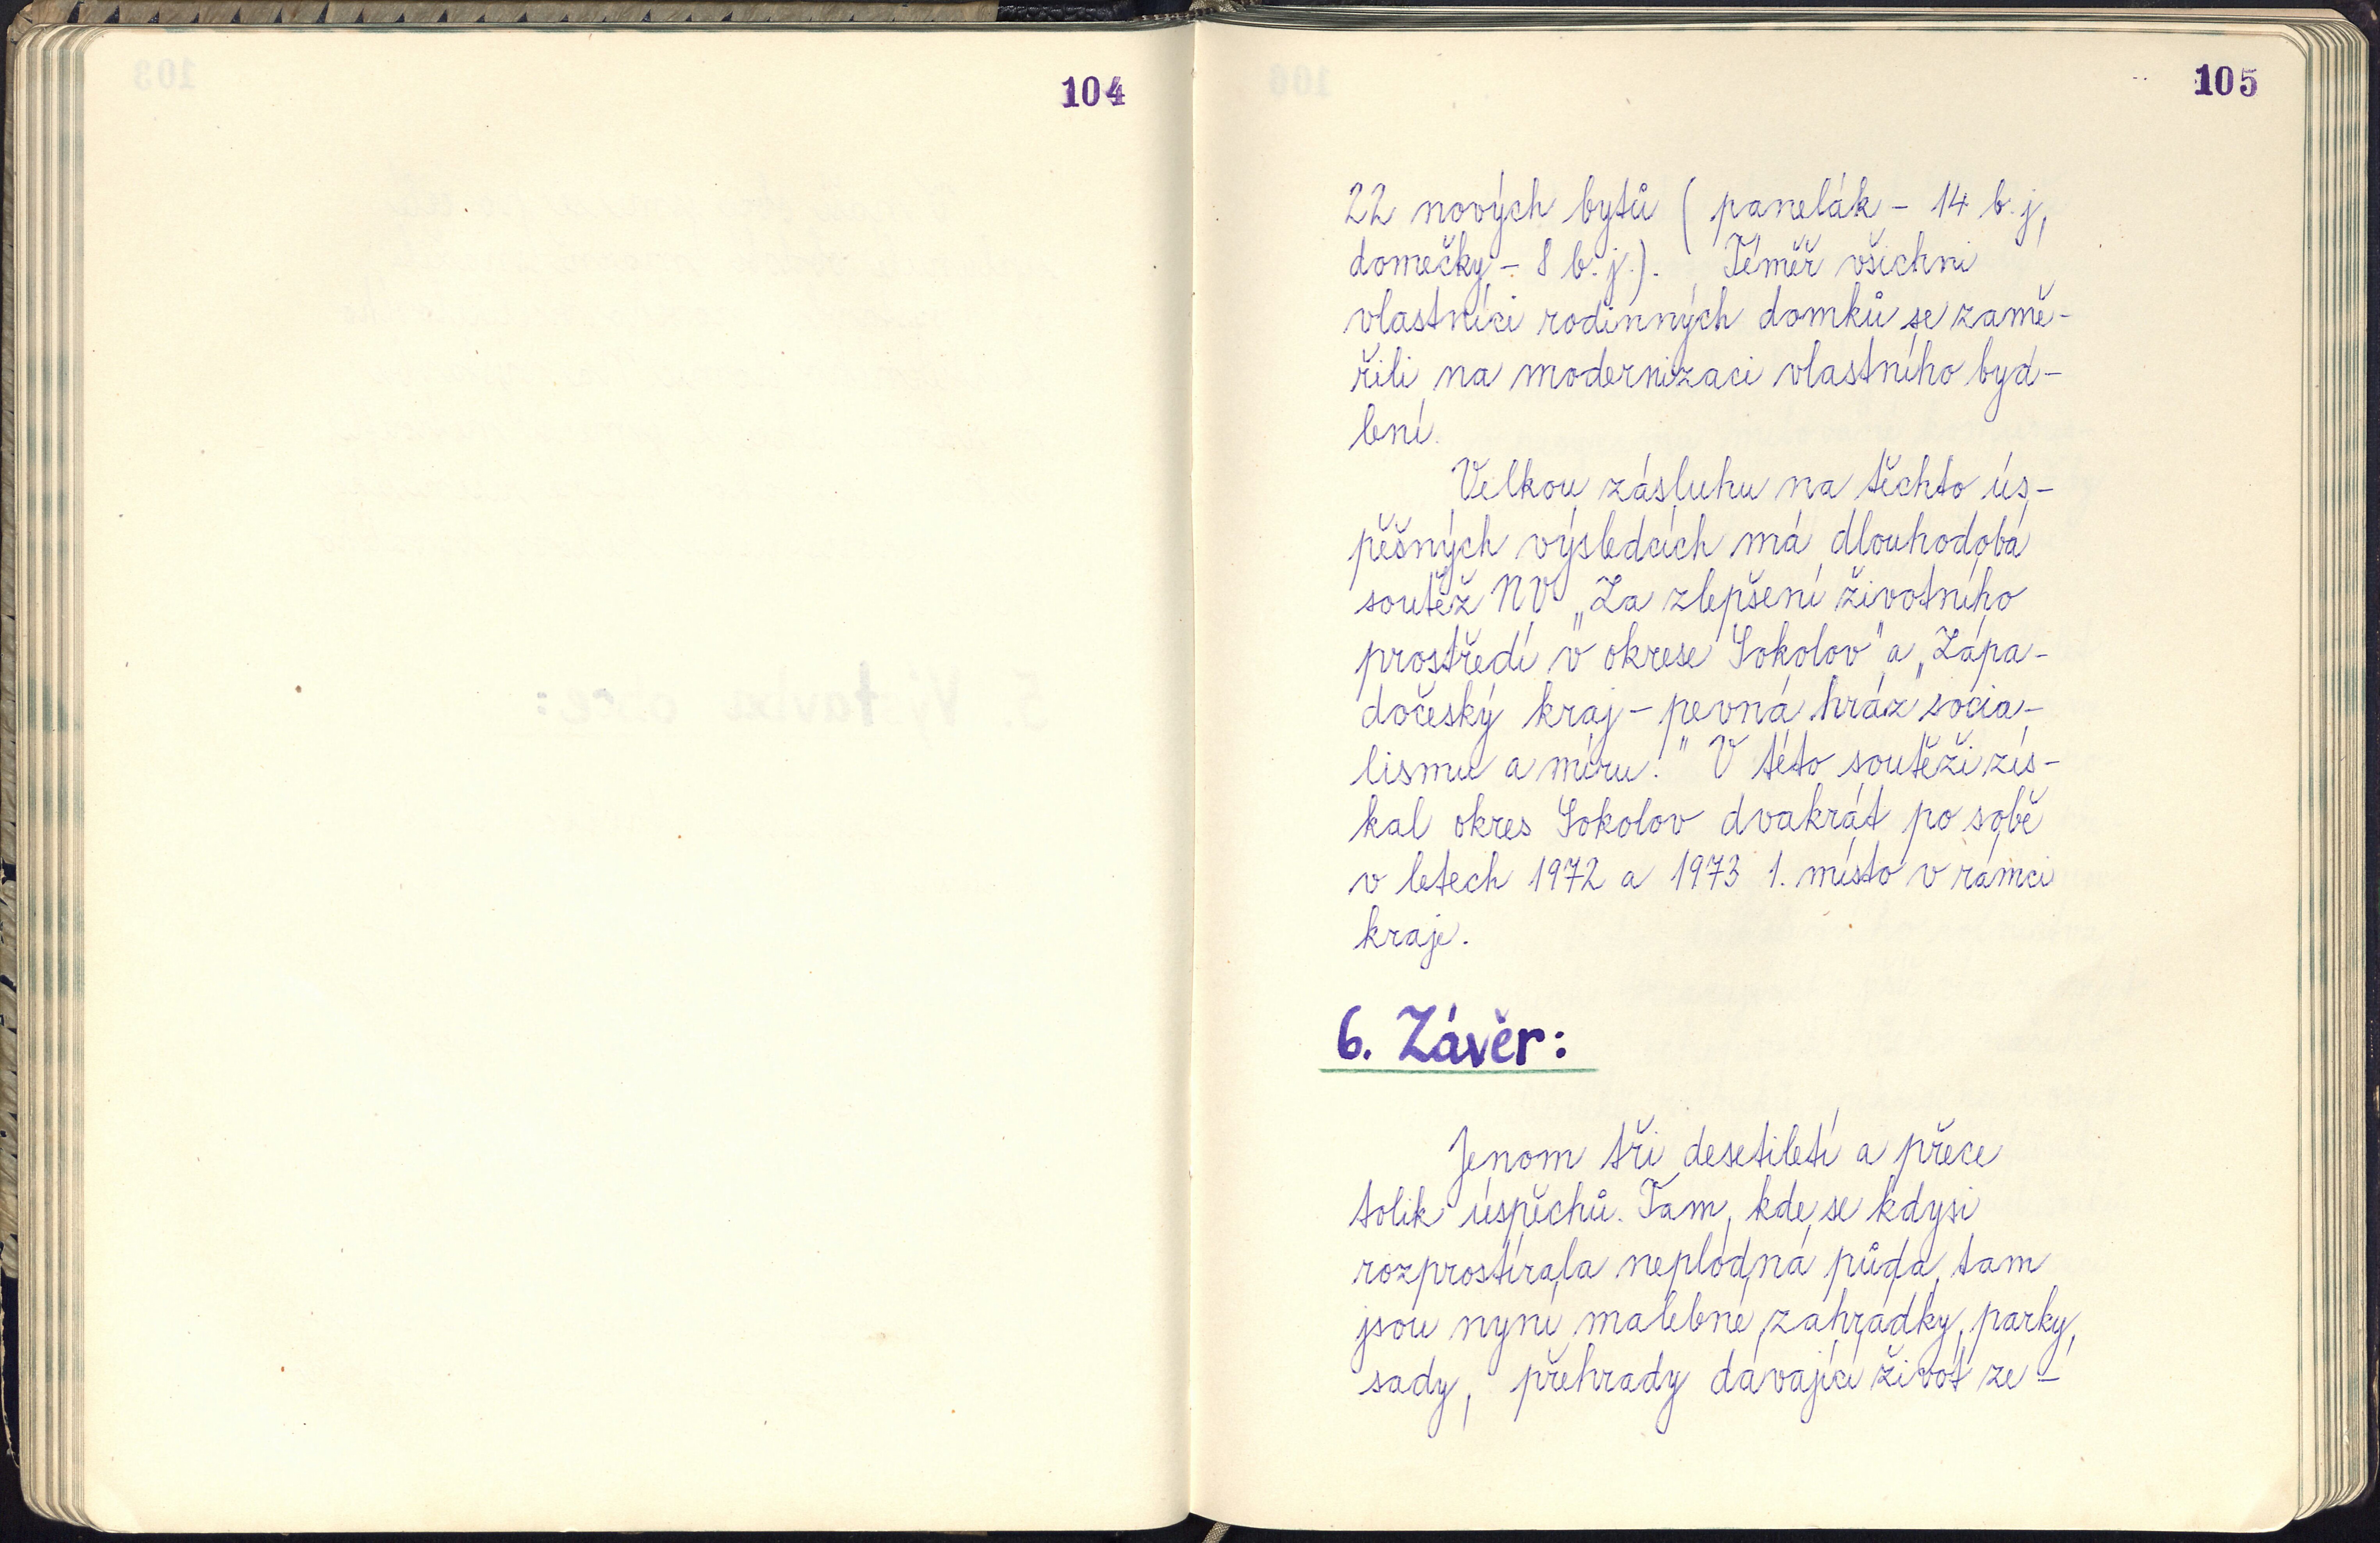 104
105
22 nových bytů ( panelák – 14 b. j,
domečky – 8 b. j.). Téměř všichni
vlastníci rodinných domků se zamě-
řili na modernizaci vlastního byd-
lení.
Velkou zásluhu na těchto ús-
pěšných výsledcích má dlouhodobá
soutěž NV „Za zlepšení životního
prostředí v okrese Sokolov" a „Zápa-
dočeský kraj – pevná hráz socia-
lismu a míru." V této soutěži zís-
kal okres Sokolov dvakrát po sobě
v letech 1972 a 1973 1. místo v rámci
kraje.
6. Závěr:
Jenom tři desetiletí a přece
tolik úspěchů. Tam, kde se kdysi
rozprostírala neplodná půda, tam
jsou nyní malebné zahrádky, parky,
sady, přehrady dávající život ze-